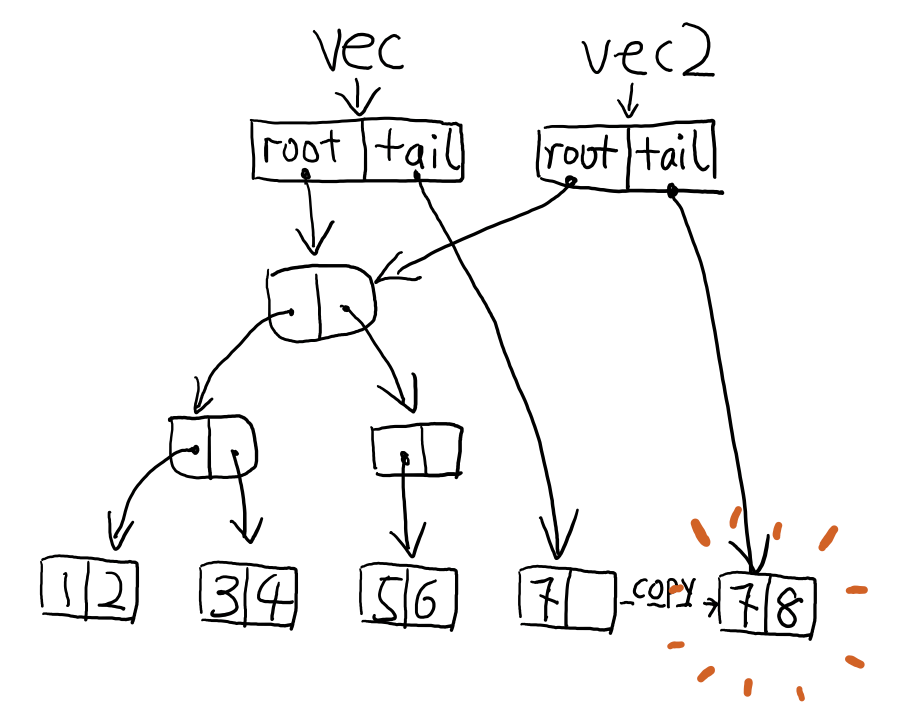 vec vec2
root tail root tail
1 2 3 4 5 6 7 copy 7 8